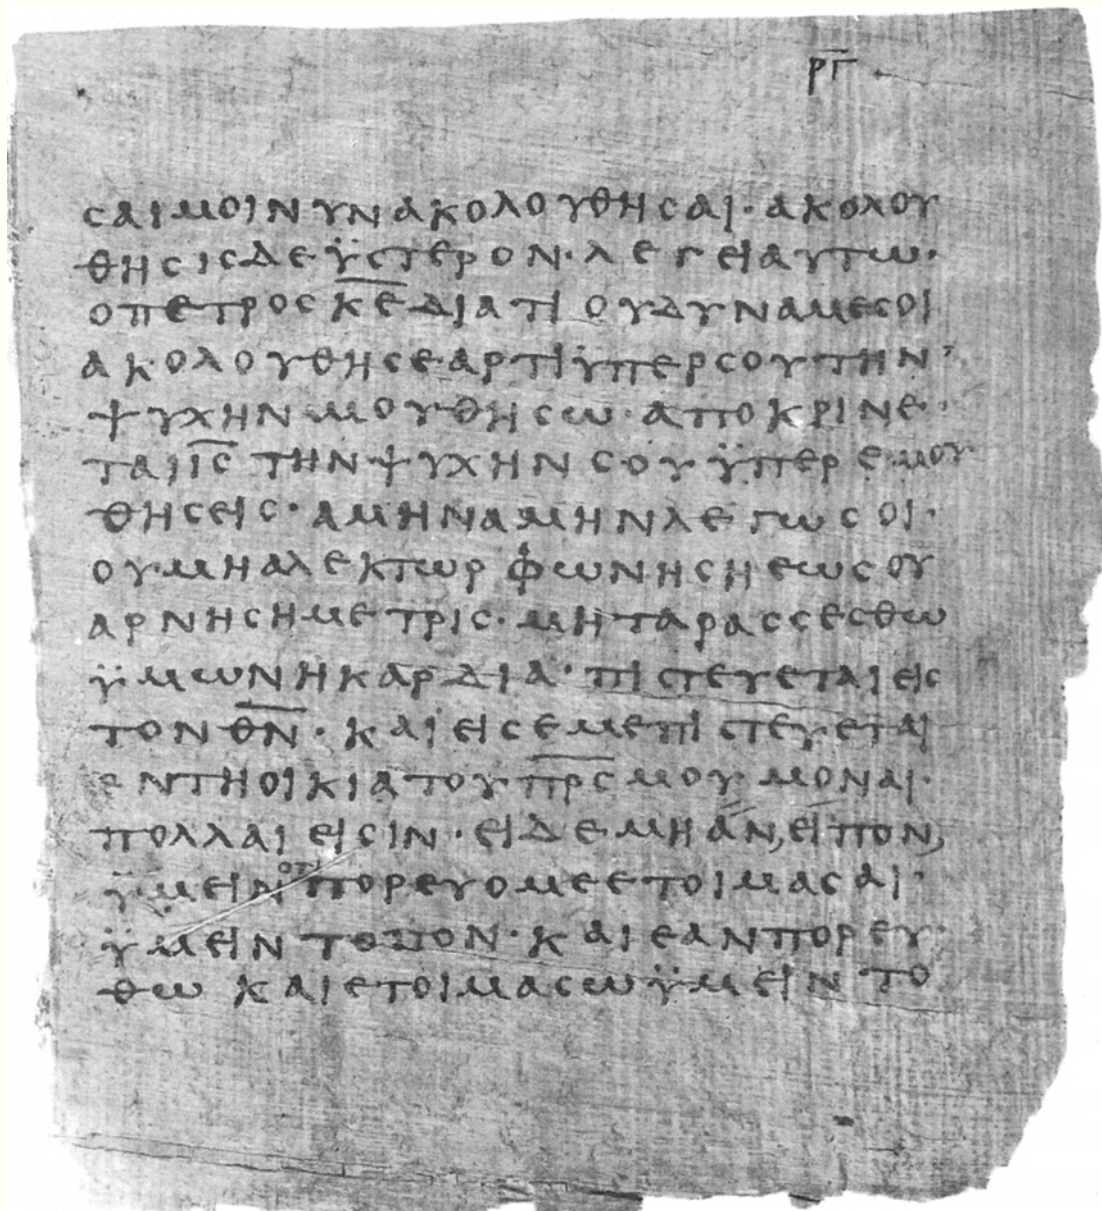 ΡΓ
ϲαιμοινυνακολουθηϲαι· ακολου
θηϲιϲδεϋϲτερον· λεγειαυτω·
οπετροϲκ̅ε̅διατιουδυναμεϲοι
ακολουθηϲεαρτιϋπερϲουτην’
ψυχηνμουθηϲω· αποκρινε·
ταιι̅ϲ̅τηνψυχηνϲουϋπερεμου
θηϲειϲ· αμηναμηνλεγωϲοι·
ουμηαλεκτωρφωνηϲηεωϲου
αρνηϲημετριϲ· μηταραϲϲεϲθω
ϋμωνηκαρδια· πιϲτευεταιειϲ
τονθ̅ν̅· καιειϲεμεπιϲτευεται
εντηοικιατουπ̅ρ̅ϲ̅μουμοναι·
πολλαιειϲιν· ειδεμηαν,ειπον,
ϋμεινοτιπορευομεετοιμαϲαι·
ϋμειντοπον· καιεανπορευ
θωκαιετοιμαϲωϋμειντο